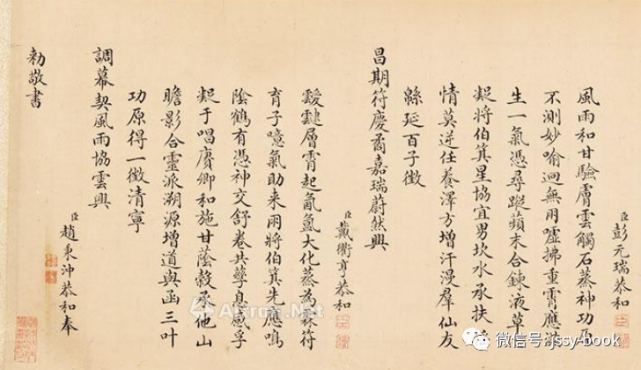 臣彭元瑞恭和
風雨和甘驗膚雲觸石蒸神功
不測妙喻迥無用噓拂重霄應
生一氣憑尋蹤蘋末合鍊液草
凝將伯箕星協宜男坎水承扶
情莫逆任養澤方增汗漫羣仙友
緜延百子徵
昌期符慶矞嘉瑞蔚然興
臣戴衢亨恭和
靉靆層霄起氤氳大化蒸為霖符
育子噫氣助來朋將伯箕先應鳴
陰鶴有憑神交舒卷共孳息感孚
凝于唱賡卿和施甘蔭穀承他山
瞻影合靈派溯源增道與函三叶
功原得一徵清寧
調幕契風雨協雲興
臣趙秉沖恭和奉
勅敬書
Artron.Net
微信号: jssy-book